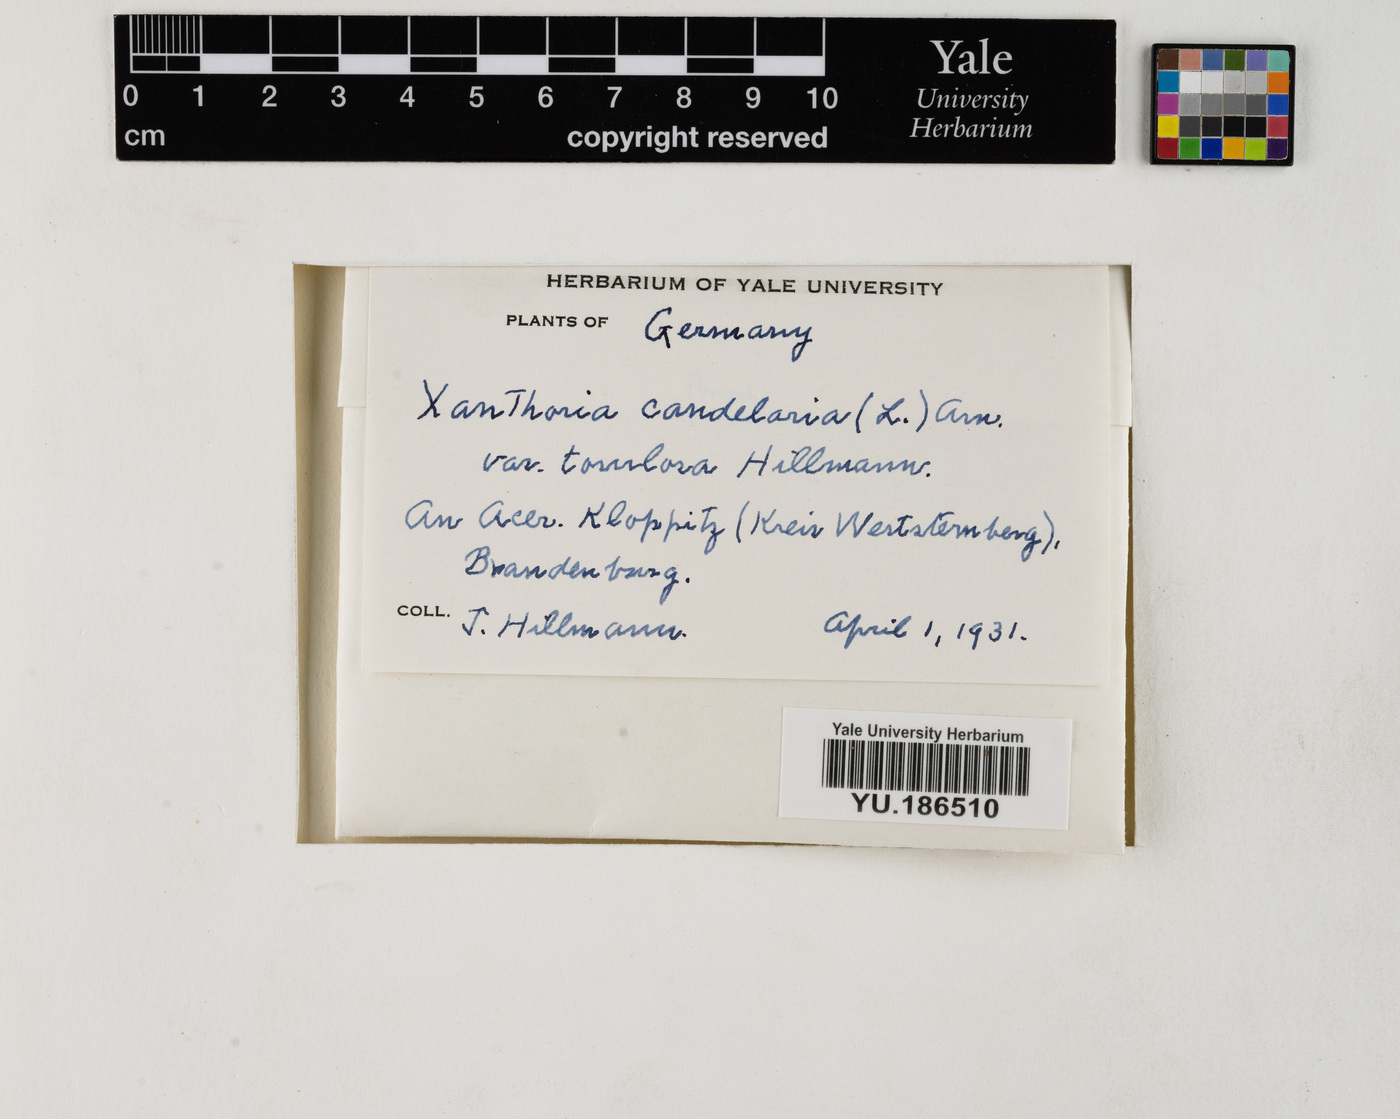 0 1 2 3 4 5 6 7 8 9 10
cm
copyright reserved
Yale
University
Herbarium
HERBARIUM OF YALE UNIVERSITY
PLANTS OF Germany
Xanthoria candelaria (L.) Arn.
var. torulosa Hillmann.
An Acer. Kloppitz (Kreis Weststernberg),
Brandenburg.
COLL. J. Hillmann. April 1, 1931.
Yale University Herbarium
YU.186510